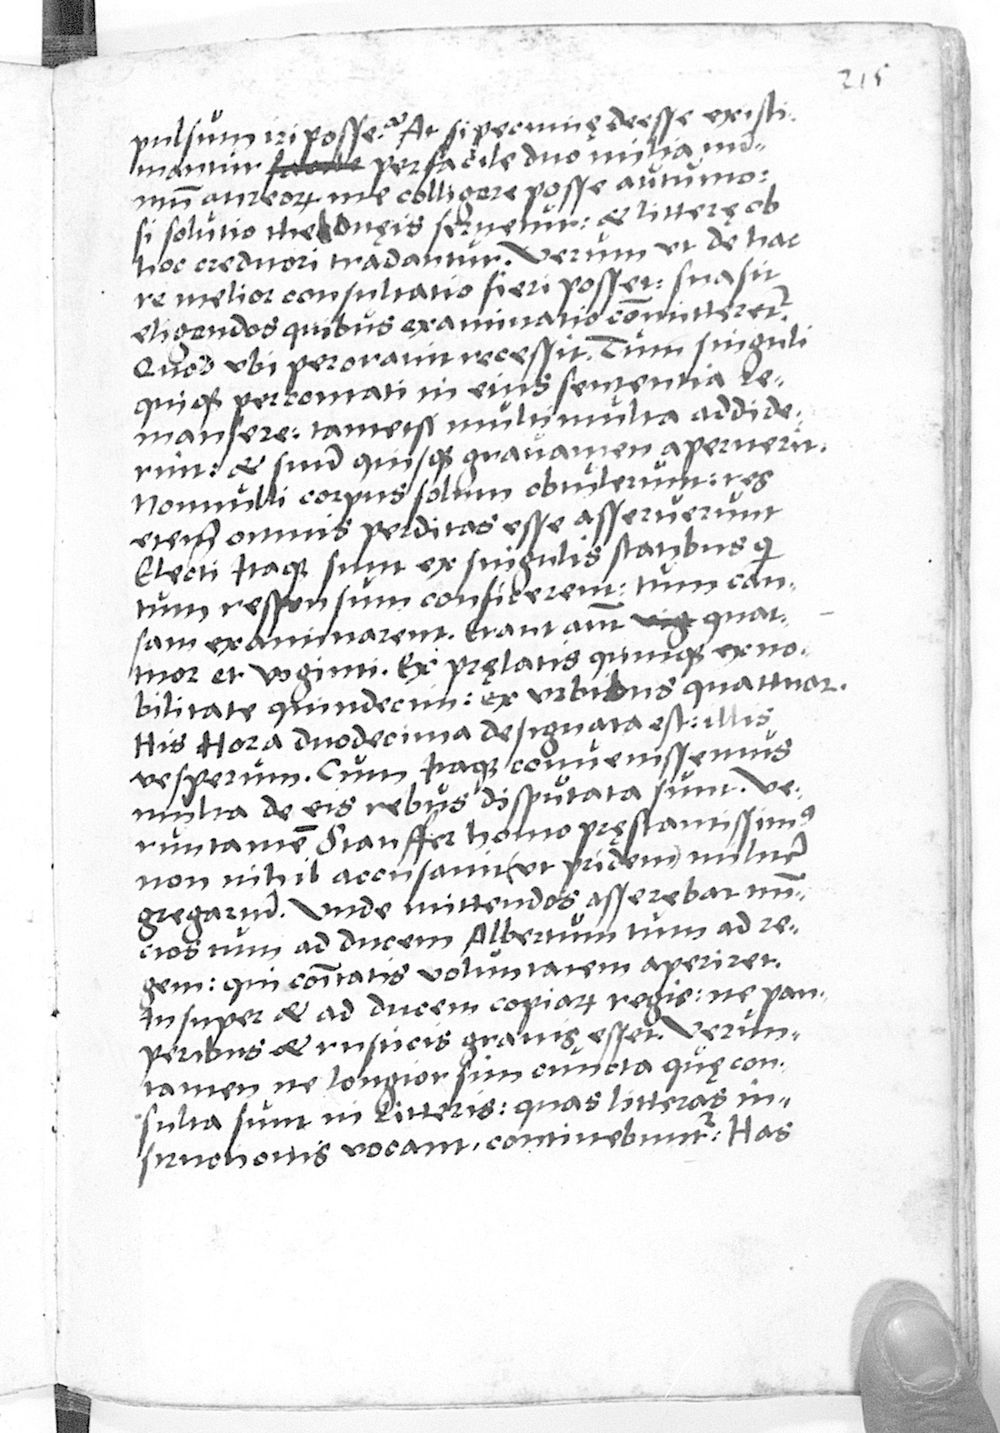 215
pulsum iri posse. At si pecunię deesse existi-
mantur facile perfacile duo milia nu-
mū aureoꝝ me colligere posse autumo:
si solutio theloneis seruetur: & litterę ob
hoc creditori tradantur. Verum vt de hac
re melior consultatio fieri posset: suasit
eligendos quibus examinatio cōmitteret̃.
Quod vbi perorauit recessit. Tum singuli
quiqꝫ percontati in eius sententia re-
mansere: tametsi multi multa addide-
rint: & suū quisqꝫ grauamen aperuerit.
Nonnulli corpus solum obtulerunt: res
eteñ omnis perditas esse asseruerunt
Electi itaqꝫ sunt ex singulis statibus qi
tum responsum conficerent: tum cau-
sam examinarent. Erant aūt vig quat-
tuor et viginti. Ex pręlatis quinqꝫ ex no-
bilitate quindecim: Ex vrbibus quattuor.
His Hora duodecima designata est: illis
vesperum. Cum itaqꝫ conuenissemus
multa de eis rebus disputata sunt. Ve-
runtamē Stauffer homo pręstantissimꝰ
non nihil accusauit (vt pridem) militē
gregariū. Vnde mittendos asserebat nū-
cios tum ad ducem Albertum tum ad re-
gem: qui cōitatis voluntatem aperiret.
Insuper & ad ducem copiaꝝ regię: ne pau-
peribus & rusticis grauis esset. Verun-
tamen ne longior sim cuncta quę con-
sulta sunt in Litteris: quas litteras in-
structionis vocant, continebunt̃: Has